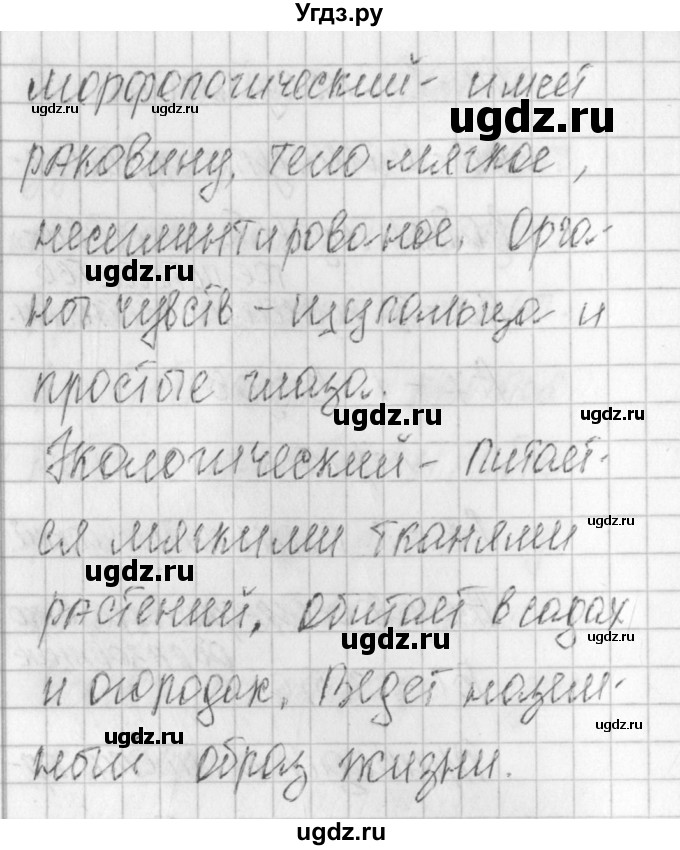 Угдз.ру
морфологический - имеет
ugdz.ru ugdz.ru ugdz.ru
раковину. Тело мягкое,
несегментированое. Орга-
ugdz.ru ugdz.ru
ны чувств - щупальца и
простые глаза.
ugdz.ru ugdz.ru
Экологический - питает-
ся мягкими тканями
ugdz.ru ugdz.ru
растений, обитает в садах
ugdz.ru ugdz.ru
и огородах. Ведет назем-
ugdz.ru ugdz.ru
ный образ жизни.
ugdz.ru